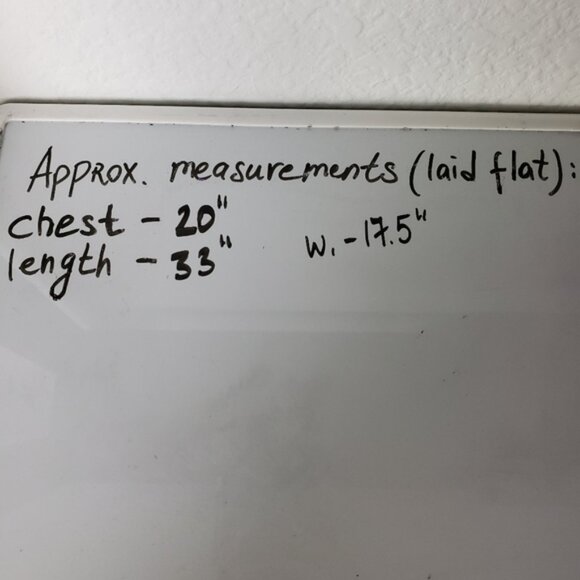 Approx. measurements (laid flat):
chest - 20"
length - 33"
w. - 17.5"